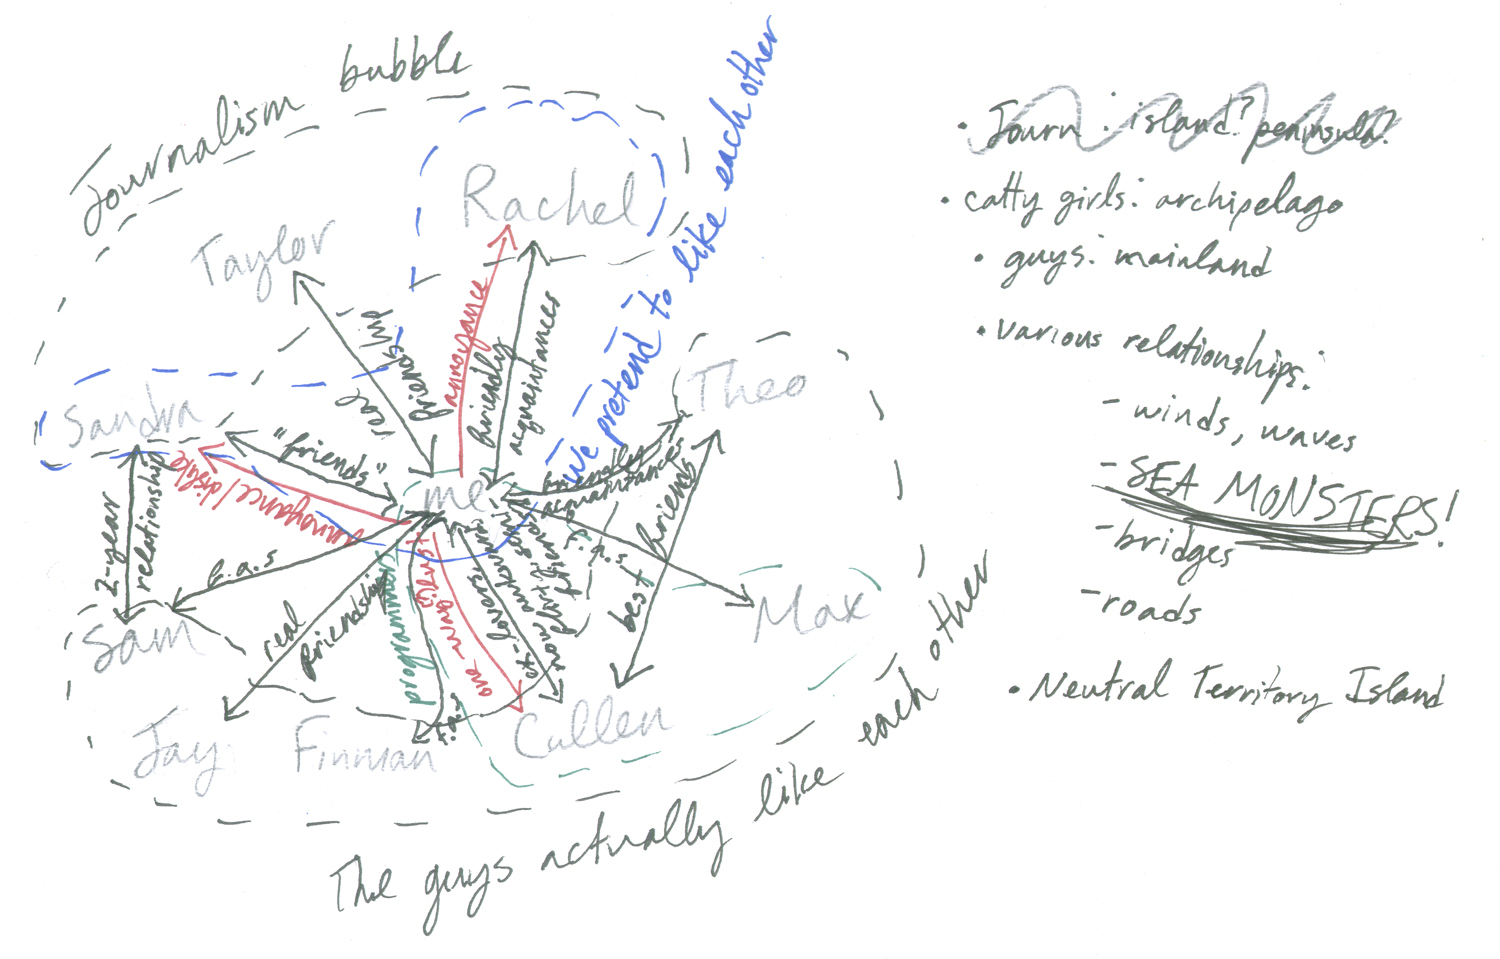 Journalism bubble
we pretend to like each other
Rachel
Taylor
Theo
Sandra
me
Max
Sam
Jay
Finnian
Cullen
real friendship
annoyance
friendly acquaintances
"friends"
annoyance/dislike
2-year relationship
f.a.s
real friendship
programming
one-way
ex-lovers
friendly acquaintances
f.a.s
best friends
The guys actually like each other
each other
• Journ: island? peninsula?
• catty girls: archipelago
• guys: mainland
• various relationships:
- winds, waves
- SEA MONSTERS!
- bridges
- roads
• Neutral Territory Island